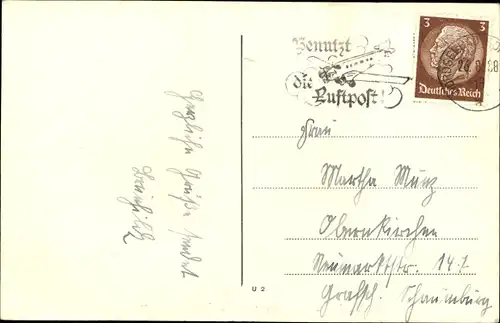 Benutzt
die
Luftpost!
3 3
Deutsches Reich
Herzliche Grüße sendet
Brunhilde
Frau
Martha Münz
Obernkirchen
Neumarktstr. 14.I.
Grafsch. Schaumburg
U 2